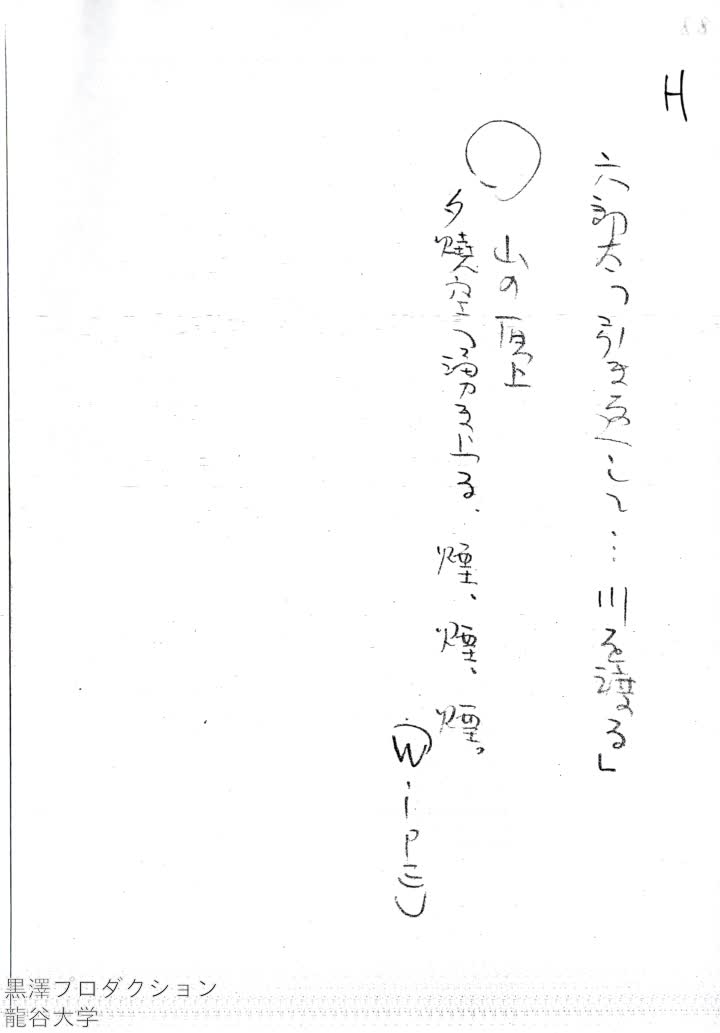 H
六郎太「引き返して…川を渡る」
○
山の頂上
夕燒空に湧き上る、煙、煙、煙。
(Wipe)
黒澤プロダクション
龍谷大学